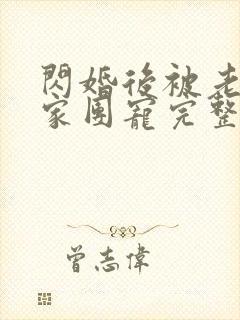 閃婚後被老
家團寵完整
曾志偉